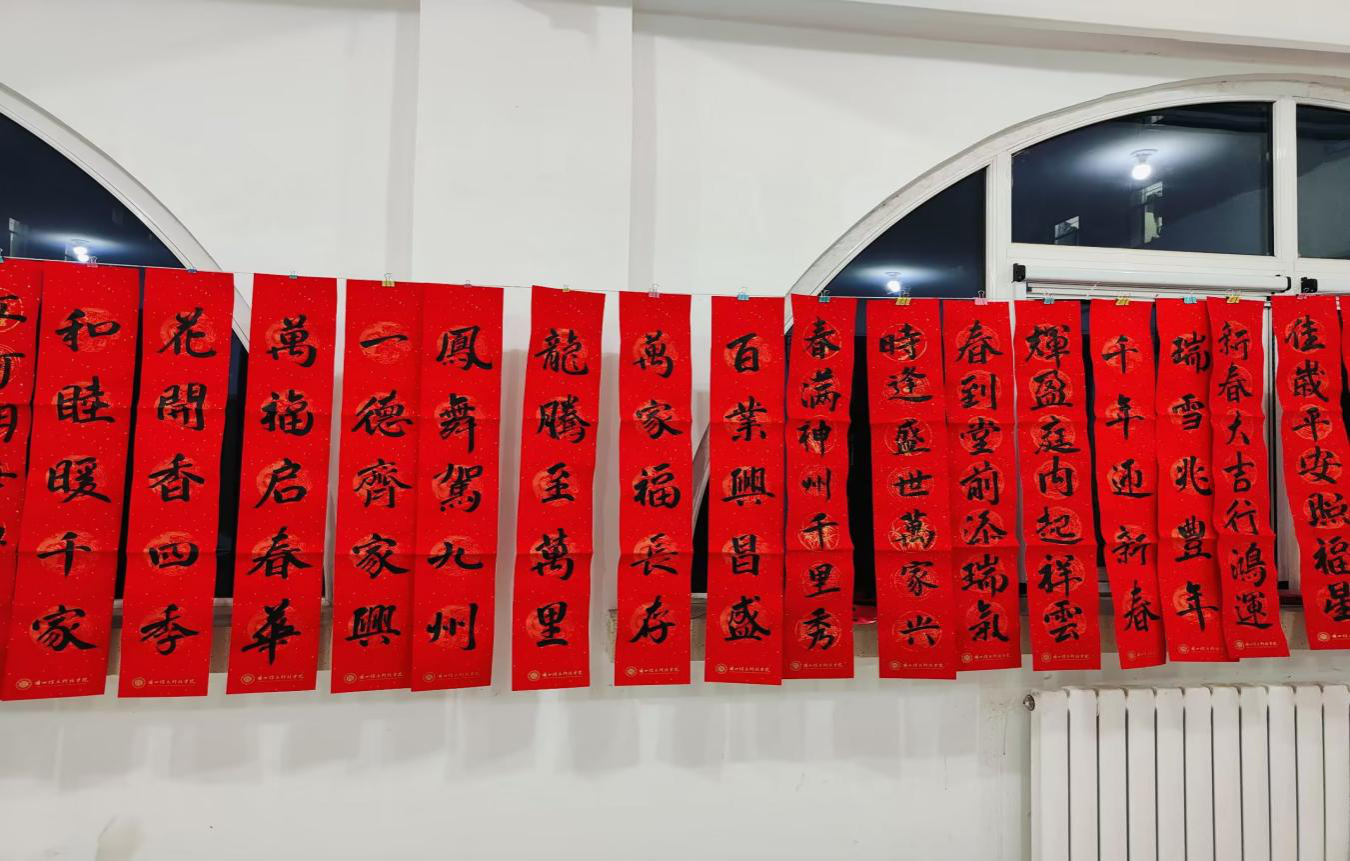 佳歲平安照福星
新春大吉行鴻運
瑞雪兆豐年
千年迎新春
輝盈庭内起祥雲
春到堂前添瑞氣
時逢盛世萬家兴
春满神州千里秀
百業興昌盛
萬家福長存
龍騰至萬里
鳳舞駕九州
一德齊家興
萬福启春華
花開香四季
和睦暖千家